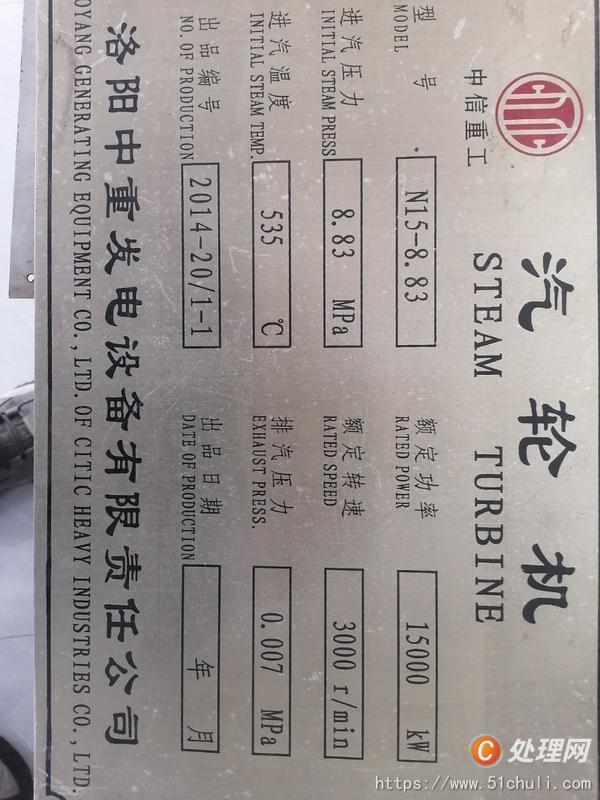 中信重工
汽轮机
STEAM TURBINE
型号
MODEL
N15-8.83
额定功率
RATED POWER
15000 kW
进汽压力
INITIAL STEAM PRESS
8.83 MPa
额定转速
RATED SPEED
3000 r/min
进汽温度
INITIAL STEAM TEMP.
535 ℃
排汽压力
EXHAUST PRESS.
0.007 MPa
出品编号
NO. OF PRODUCTION
2014-20/1-1
出品日期
DATE OF PRODUCTION
年 月
洛阳中重发电设备有限责任公司
OYANG GENERATING EQUIPMENT CO.,LTD.OF CITIC HEAVY INDUSTRIES CO.,LTD.
C处理网
https://www.51chuli.com/